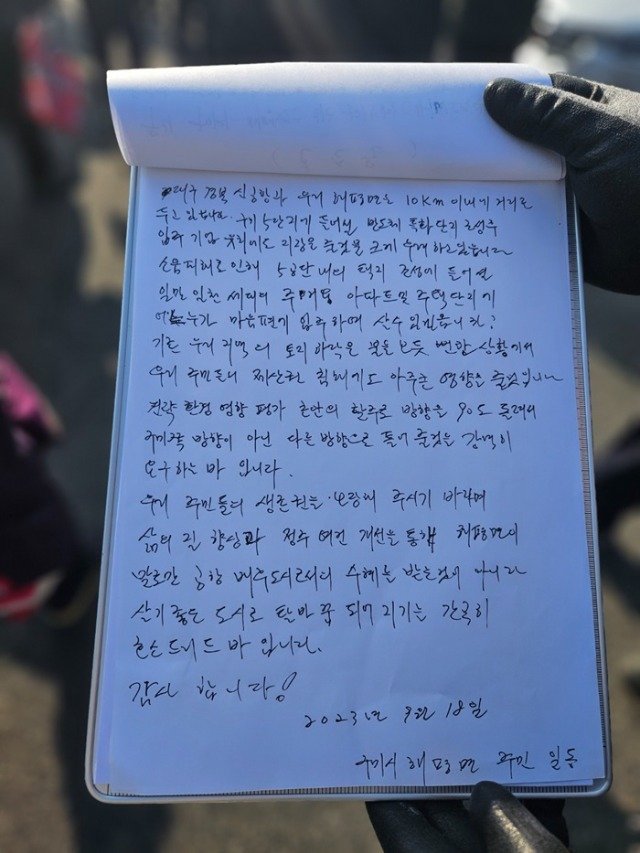 대구 경북 신공항과 우리 해평면은 10Km 이내의 거리를
두고 있습니다. 구미 5단지가 들어설 반도체 특화단지 조성후
입주 기업 유치에도 지장을 줄것을 크게 우려 하고 있습니다
소음피해로 인해 5공단 내의 택지 조성에 들어설
일만 일천 세대의 주거용 아파트및 주택단지가
어느누가 마음편히 입주하며 살수 있겠읍니까?
기존 우리 지역의 토리 하락은 불을 보듯 뻔한 상황이며
우리 주민들의 재산권 침해에도 아주큰 영향을 줄것입니다
전략 환경 영향 평가 초안의 활주로 방향을 90도 돌려서
구미쪽 방향이 아닌 다른 방향으로 틀어 줄것을 강력히
요구하는 바 입니다.
우리 주민들의 생존권을 보장해 주시기 바라며
삶의 질 향상과 정주 여건 개선을 통해 해평면이
말로만 공항 배후도시로서의 수혜를 받는것이 아니라
살기좋은 도시로 탈바꿈 되어 지기를 간곡히
호소드리는 바 입니다.
감사 합니다!
2023년 9월 18일
구미시 해평면 주민 일동